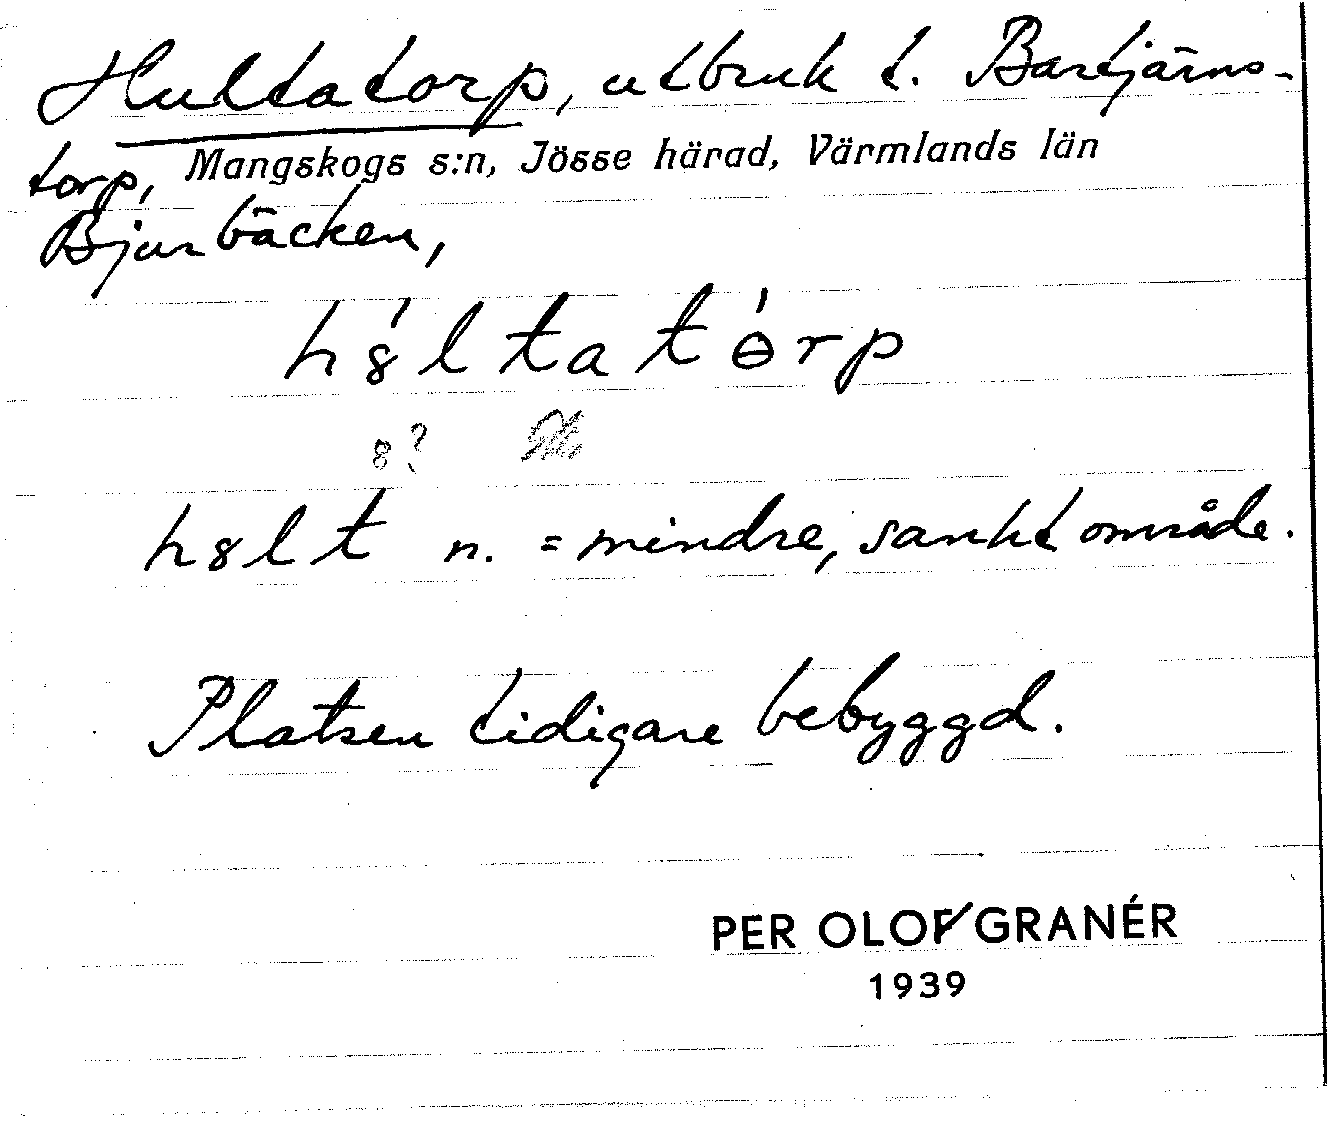 Hultatorp, utbruk t. Bartjärns-
torp, Mangskogs s:n, Jösse härad, Värmlands län
Bjurbäcken,
h8́ltatɵ́rp
8?
h8lt n. = mindre, sankt område.
Platsen tidigare bebyggd.
PER OLOF GRANÉR
1939